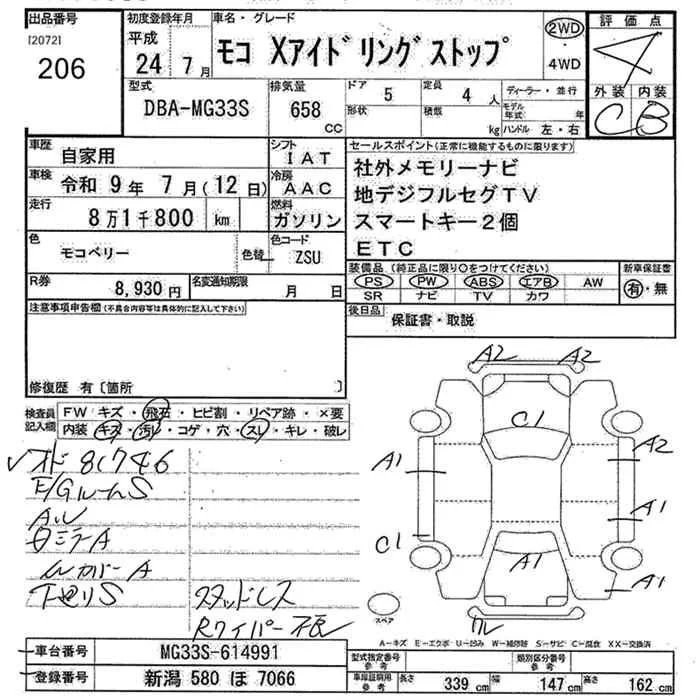 出品番号
[2072]
206
初度登録年月
平成
24 7月
車名・グレード
モコ Xアイドリングストップ
2WD
・4WD
評価点
4
外装 内装
C B
型式
DBA-MG33S
排気量
658
CC
ドア
5
形状
定員
4 人
積数
kg
ディーラー・並行
モデル年式 年
ハンドル 左・右
車歴
自家用
シフト
IAT
車検
令和 9年 7月(12日)
冷房
AAC
走行
8万1千800 km
燃料
ガソリン
色
モコベリー
色替
色コード
ZSU
R券
8,930円
名変通知期限
月 日
セールスポイント(正常に機能するものに限ります)
社外メモリーナビ
地デジフルセグTV
スマートキー2個
ETC
装備品(純正品に限り○をつけてください)
PS PW ABS エアB AW
SR ナビ TV カワ
新車保証書
有・無
後日品
保証書・取説
注意事項申告欄(不具合内容等は具体的に記入して下さい)
修復歴 有〔箇所 〕
検査員記入欄
FW キズ・飛石・ヒビ割・リペア跡・×要
内装 キズ・汚れ・コゲ・穴・スレ・キレ・破レ
オド 81746
E/GルームS
下廻りS
スタッドレス
Rワイパー不良
A2 A2
C1
A1 A2
A1
C1
A1
A1
スペア
A－キズ E－エクボ U－凹み W－補修跡 S－サビ C－腐食 XX－交換済
車台番号
MG33S-614991
登録番号
新潟 580 ほ 7066
型式指定番号
参考
類別区分番号
参考
車庫証明用
参考
長さ 339 cm 幅 147 cm 高さ 162 cm